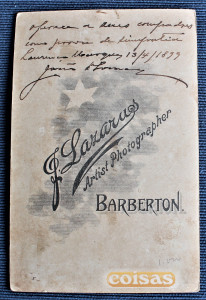 offerece a seus compadres
como prova de
Lourenço Marques 13/4/1899
J. Lazarus
Artist Photographer
BARBERTON.
coisas